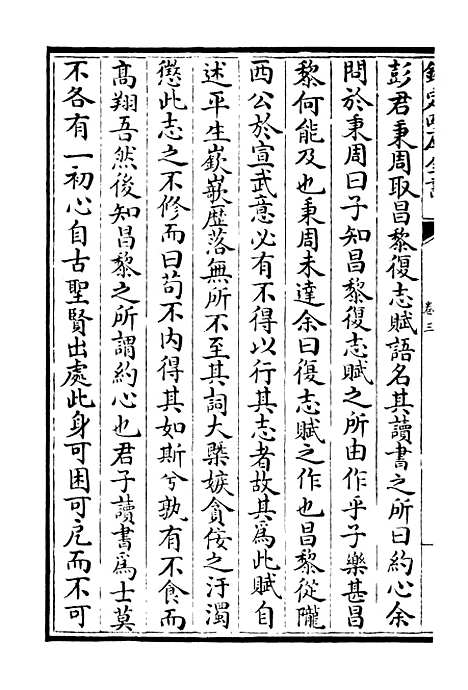 欽定四庫全書
卷三
彭君秉周取昌黎復志賦語名其讀書之所曰約心余
問於秉周曰子知昌黎復志賦之所由作乎子樂甚昌
黎何能及也秉周未達余曰復志賦之作也昌黎從隴
西公於宣武意必有不得以行其志者故其為此賦自
述平生嶔嶔歷落無所不至其詞大槩嫉貪佞之汙濁
懲此志之不修而曰苟不內得其如斯兮孰有不食而
髙翔吾然後知昌黎之所謂約心也君子讀書為士莫
不各有一初心自古聖賢出處此身可困可戹而不可